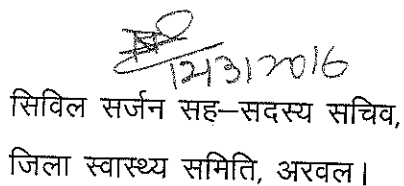 12/3/2016
सिविल सर्जन सह–सदस्य सचिव,
जिला स्वास्थ्य समिति, अरवल।